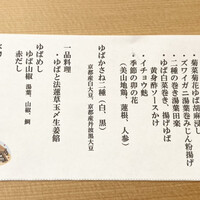 ・菊菜菊花ゆば胡麻浸し
・ズワイガニ湯葉巻みじん粉揚げ
・二種の巻き湯葉田楽
・ゆば白菜巻き、揚げゆば
　黄身酢ソースかけ
・イチョウ麩
・季節の卯の花
（美山地鶏、蓮根、人参）
ゆばかさね二種（白、黒）
京都産白大豆、京都産丹波黒大豆
一品料理
・ゆばと法蓮草玉〆生姜餡
ゆばめし
ゆば山椒　湯葉、山椒、鯛
赤だし